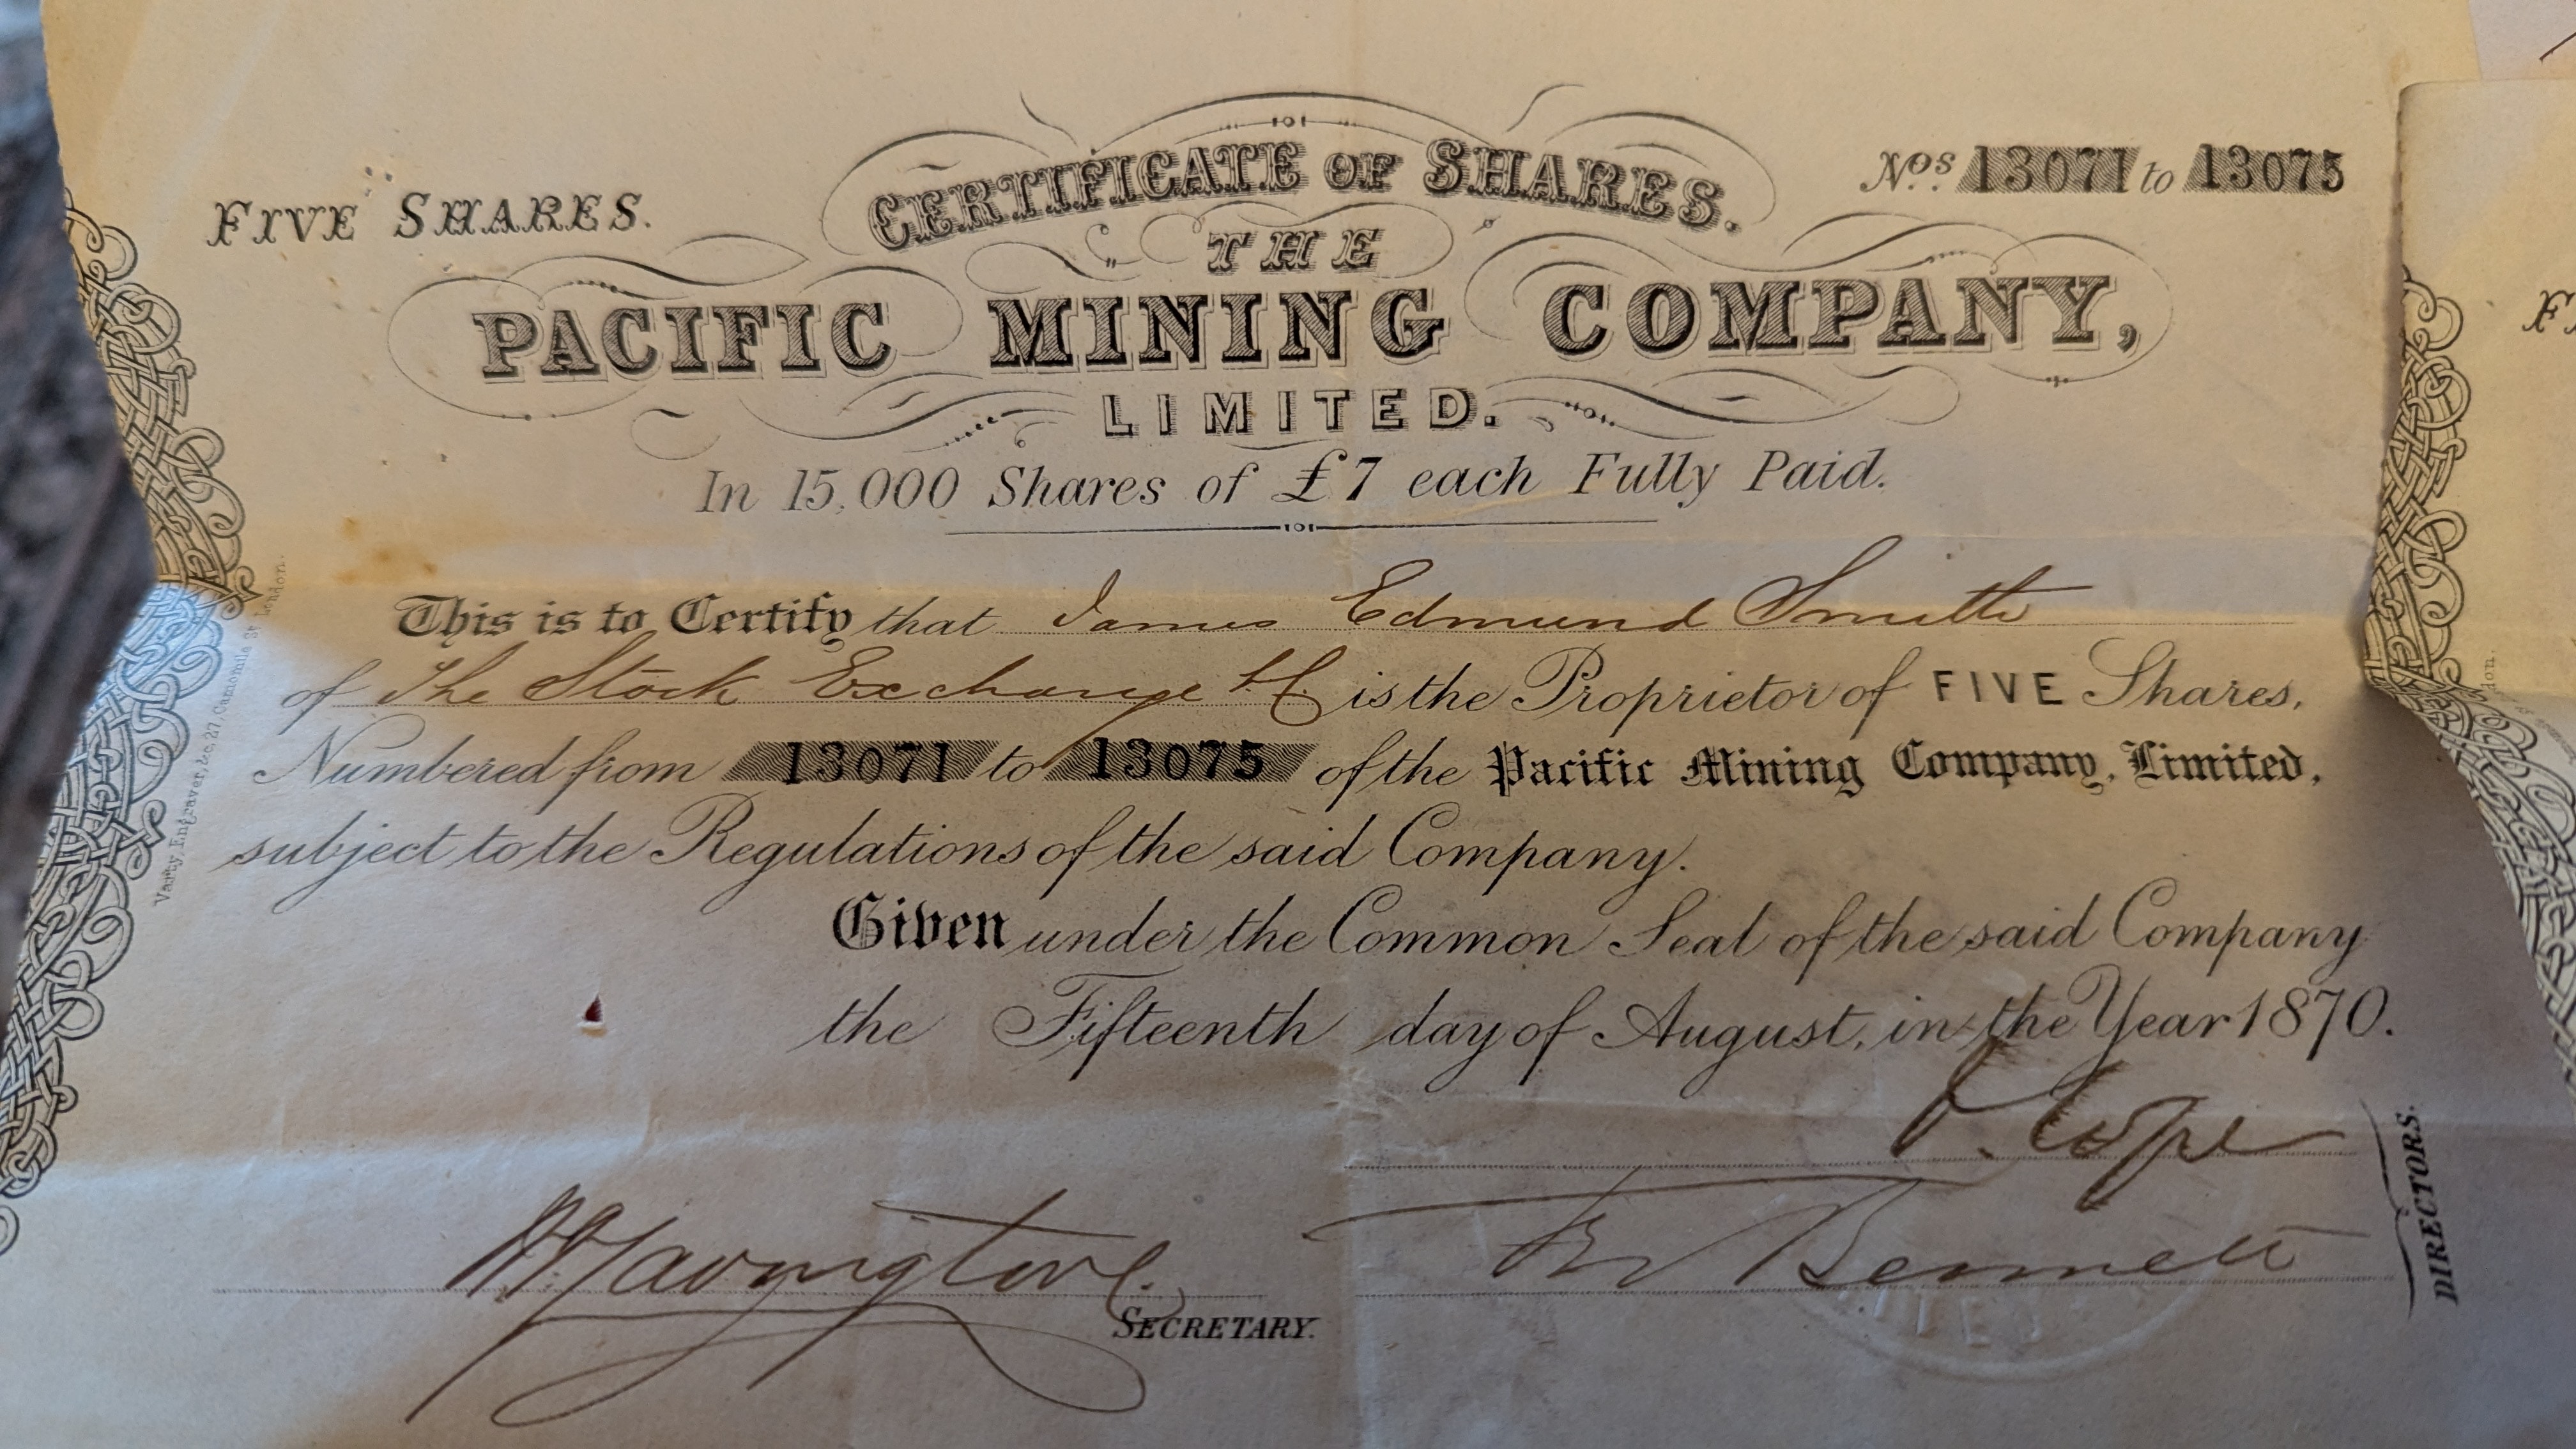 FIVE SHARES.
CERTIFICATE OF SHARES.
Nos. 13071 to 13075
THE
PACIFIC MINING COMPANY,
LIMITED.
In 15,000 Shares of £7 each Fully Paid.
This is to Certify that James Edmund Smith
of The Stock Exchange is the Proprietor of FIVE Shares,
Numbered from 13071 to 13075 of the Pacific Mining Company, Limited,
subject to the Regulations of the said Company.
Given under the Common Seal of the said Company
the Fifteenth day of August, in the Year 1870.
Cope
Bennett
DIRECTORS.
SECRETARY.
Varty, Engraver, &c. 27, Camomile St. London.